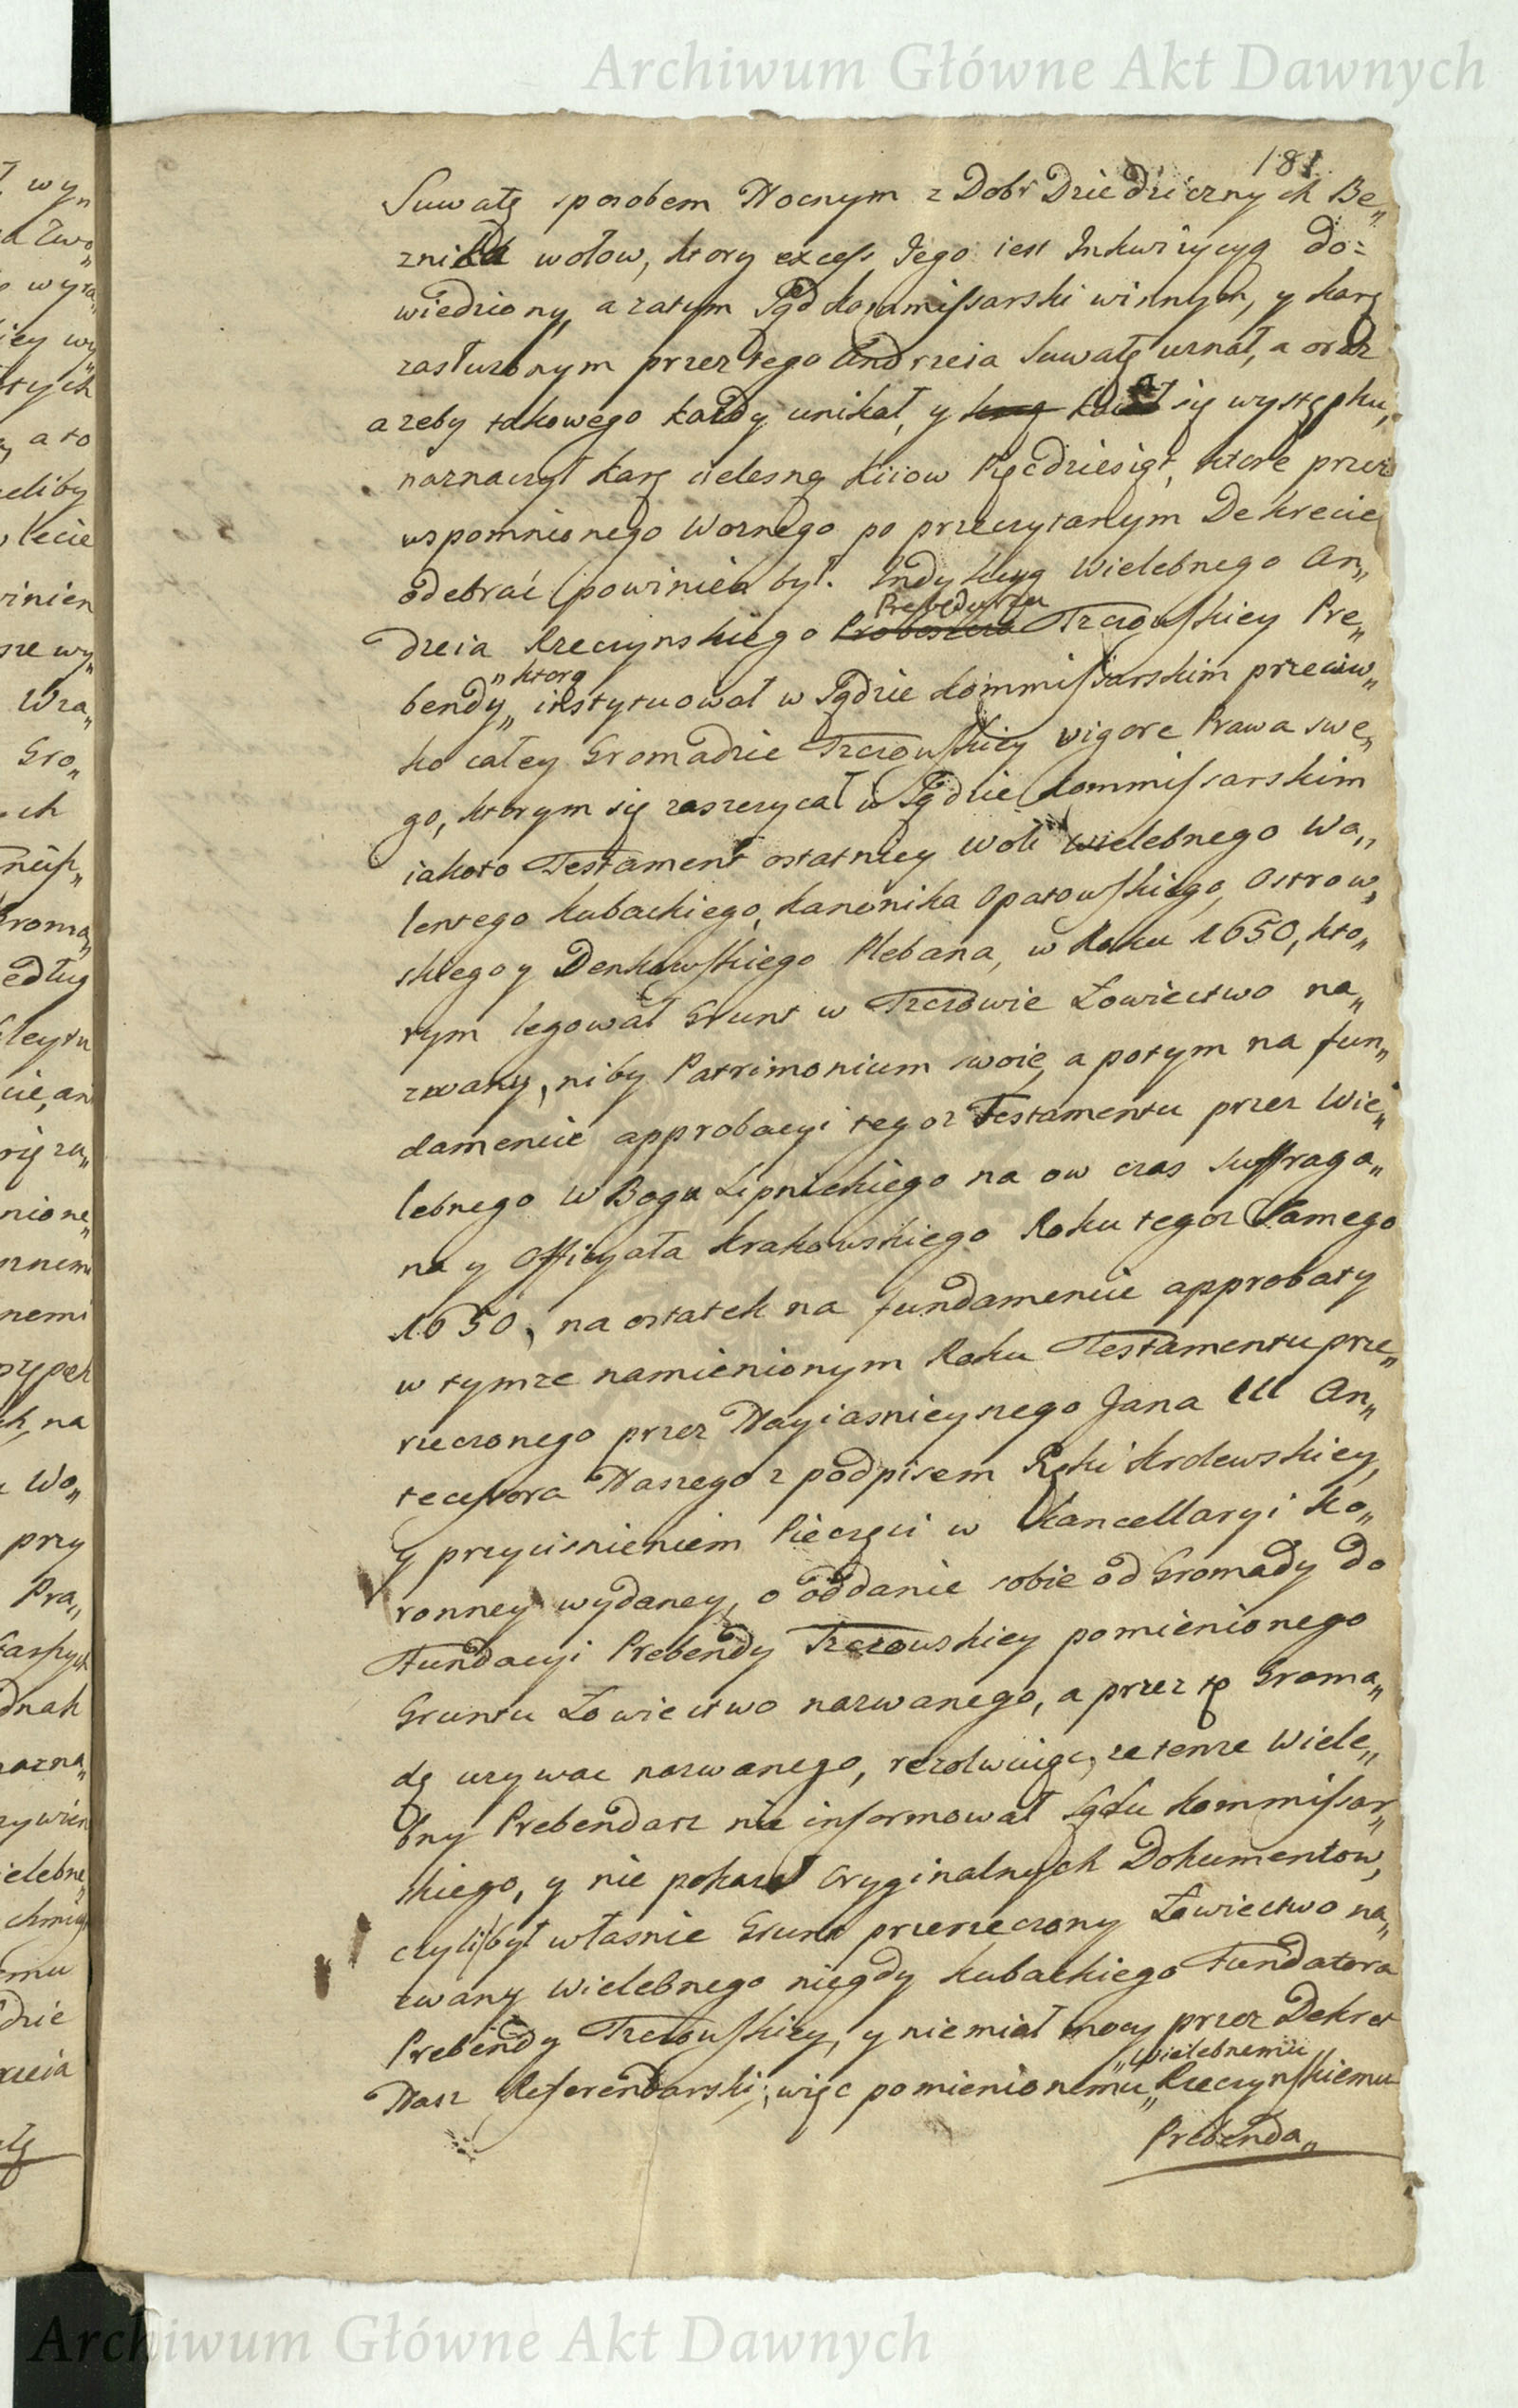 Archiwum Główne Akt Dawnych
181.
Suwałę sposobem Nocnym z Dobr Dziedzicznych Be„
znik wołow, ktory excess Jego iest Inkwizycyą do=
wiedziony, a zatym Sąd Kommissarski winnym, y karę
zasłuzonym przez tego Andrzeia Suwałę uznał, a oraz
azeby takowego kazdy unikał, y się występku,
naznaczył karę cielesną kiiow Pięcdziesiąt, ktore przez
wspomnionego Woznego po przeczytanym Dekrecie
odebrać powinien był. Indykcyą Wielebnego An„
Prebędarza
dzeia Rzeczynskiego Proboszcza Trzcrowskiey Pre„
„ktorą
bendy„ instytuował w Sądzie Kommissarskim przeciw„
ko całey Gromadzie Tzczowskiey vigore Prawa swe„
go, ktorym się zaszczycał w Sądzie Kommissarskim
iakoto Testament ostatniey woli Wielebnego Wa„
lentego Kubackiego, Kanonika Opatowskiego, Ostrow„
skiego y Denkowskiego Plebana, w Roku 1650, kto„
rym legował Grunt w Tzczowie Łowiectwo na„
zwany, niby Patrimonium swoie, a potym na fun„
damencie approbacyi tegoz Testamentu przez Wie„
lebnego W Bogu Lipnickiego na ow czas Suffraga„
na y Officyała Krakowskiego Roku tegoz Samego
1650, na ostatek na fundamencie approbaty
w tymze namienionym Roku Testamentu prze„
rzeczonego przez Nayiasnieyszego Jana III An„
tecessora Naszego z podpisem Ręki Krolewskiey,
y przycisnieniem Pieczęci w Kancellaryi Ko„
ronney wydaney, o oddanie sobie od Gromady do
Fundacyi Prebendy Tzczowskiey pomienionego
Gruntu Łowiectwo nazwanego, a przez tę Groma„
dę uzywac nazwanego, rezolwuiąc, ze tenze Wiele„
bny Prebendarz nie informował Sądu Kommissar„
skiego, y nie pokazał Oryginalnych Dokumentow,
czyli był własnie Grunt przerzeczony Łowiectwo na„
zwany Wielebnego niegdy Kubackiego Fundatora
Prebendy Tzczowskiey, y niemiał mocy przez Dekret
„Wielebnemu
Nasz Referendarski; więc pomienionemu„ Rzeczynskiemu
Prebenda„
Archiwum Główne Akt Dawnych